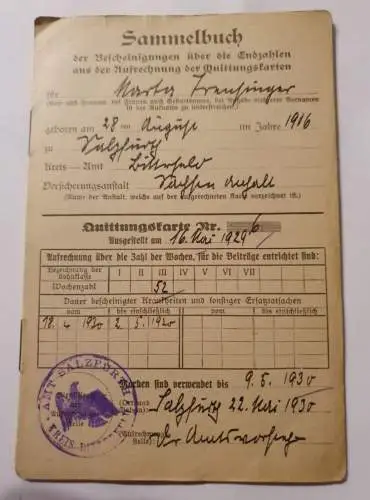 Sammelbuch
der Bescheinigungen über die Endzahlen
aus der Aufrechnung der Quittungskarten
für Marta
(Ruf- und Zuname, bei Frauen auch Geburtsname, bei Angabe mehrerer Vornamen
ist der Rufname zu unterstreichen.)
geboren am 28 ten August im Jahre 1916
zu Salzfurth
Kreis – Amt Bitterfeld
Versicherungsanstalt Sachsen Anhalt
(Name der Anstalt, welche auf der aufgerechneten Karte vorgezeichnet ist.)
Quittungskarte Nr. 6
Ausgestellt am 16. Mai 1929
Aufrechnung über die Zahl der Wochen, für die Beiträge entrichtet sind:
Bezeichnung der Lohnklasse I II III IV V VI VII
Wochenzahl 52
Dauer bescheinigter Krankheiten und sonstiger Ersatztatsachen
vom bis einschließlich vom bis einschließlich
18. 4 1930 2. 5. 1930
Marken sind verwendet bis 9. 5. 1930
AMT SALZFURTH
(Ort und Datum) Salzfurth 22. Mai 1930
Der Amtsvorsteher
KREIS BITTERFELD